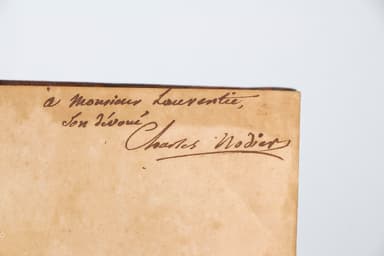 à Monsieur Laurentie,
son dévoué
Charles Nodier